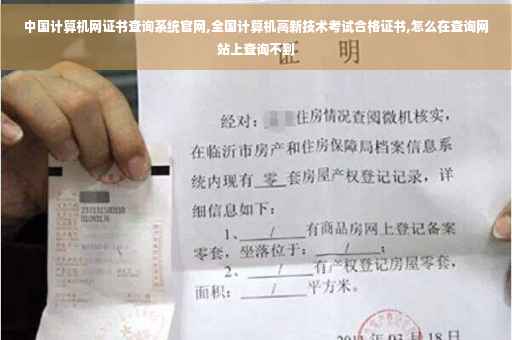 中国计算机网证书查询系统官网,全国计算机高新技术考试合格证书,怎么在查询网
站上查询不到
证 明
经对: 住房情况查阅微机核实,
在临沂市房产和住房保障局档案信息系
统内现有 零 套房屋产权登记记录, 详
细信息如下:
1、 / 有商品房网上登记备案
零套, 坐落位于: / ;
2、 / 有产权登记房屋零套,
面积: / 平方米。
03 月 18 日